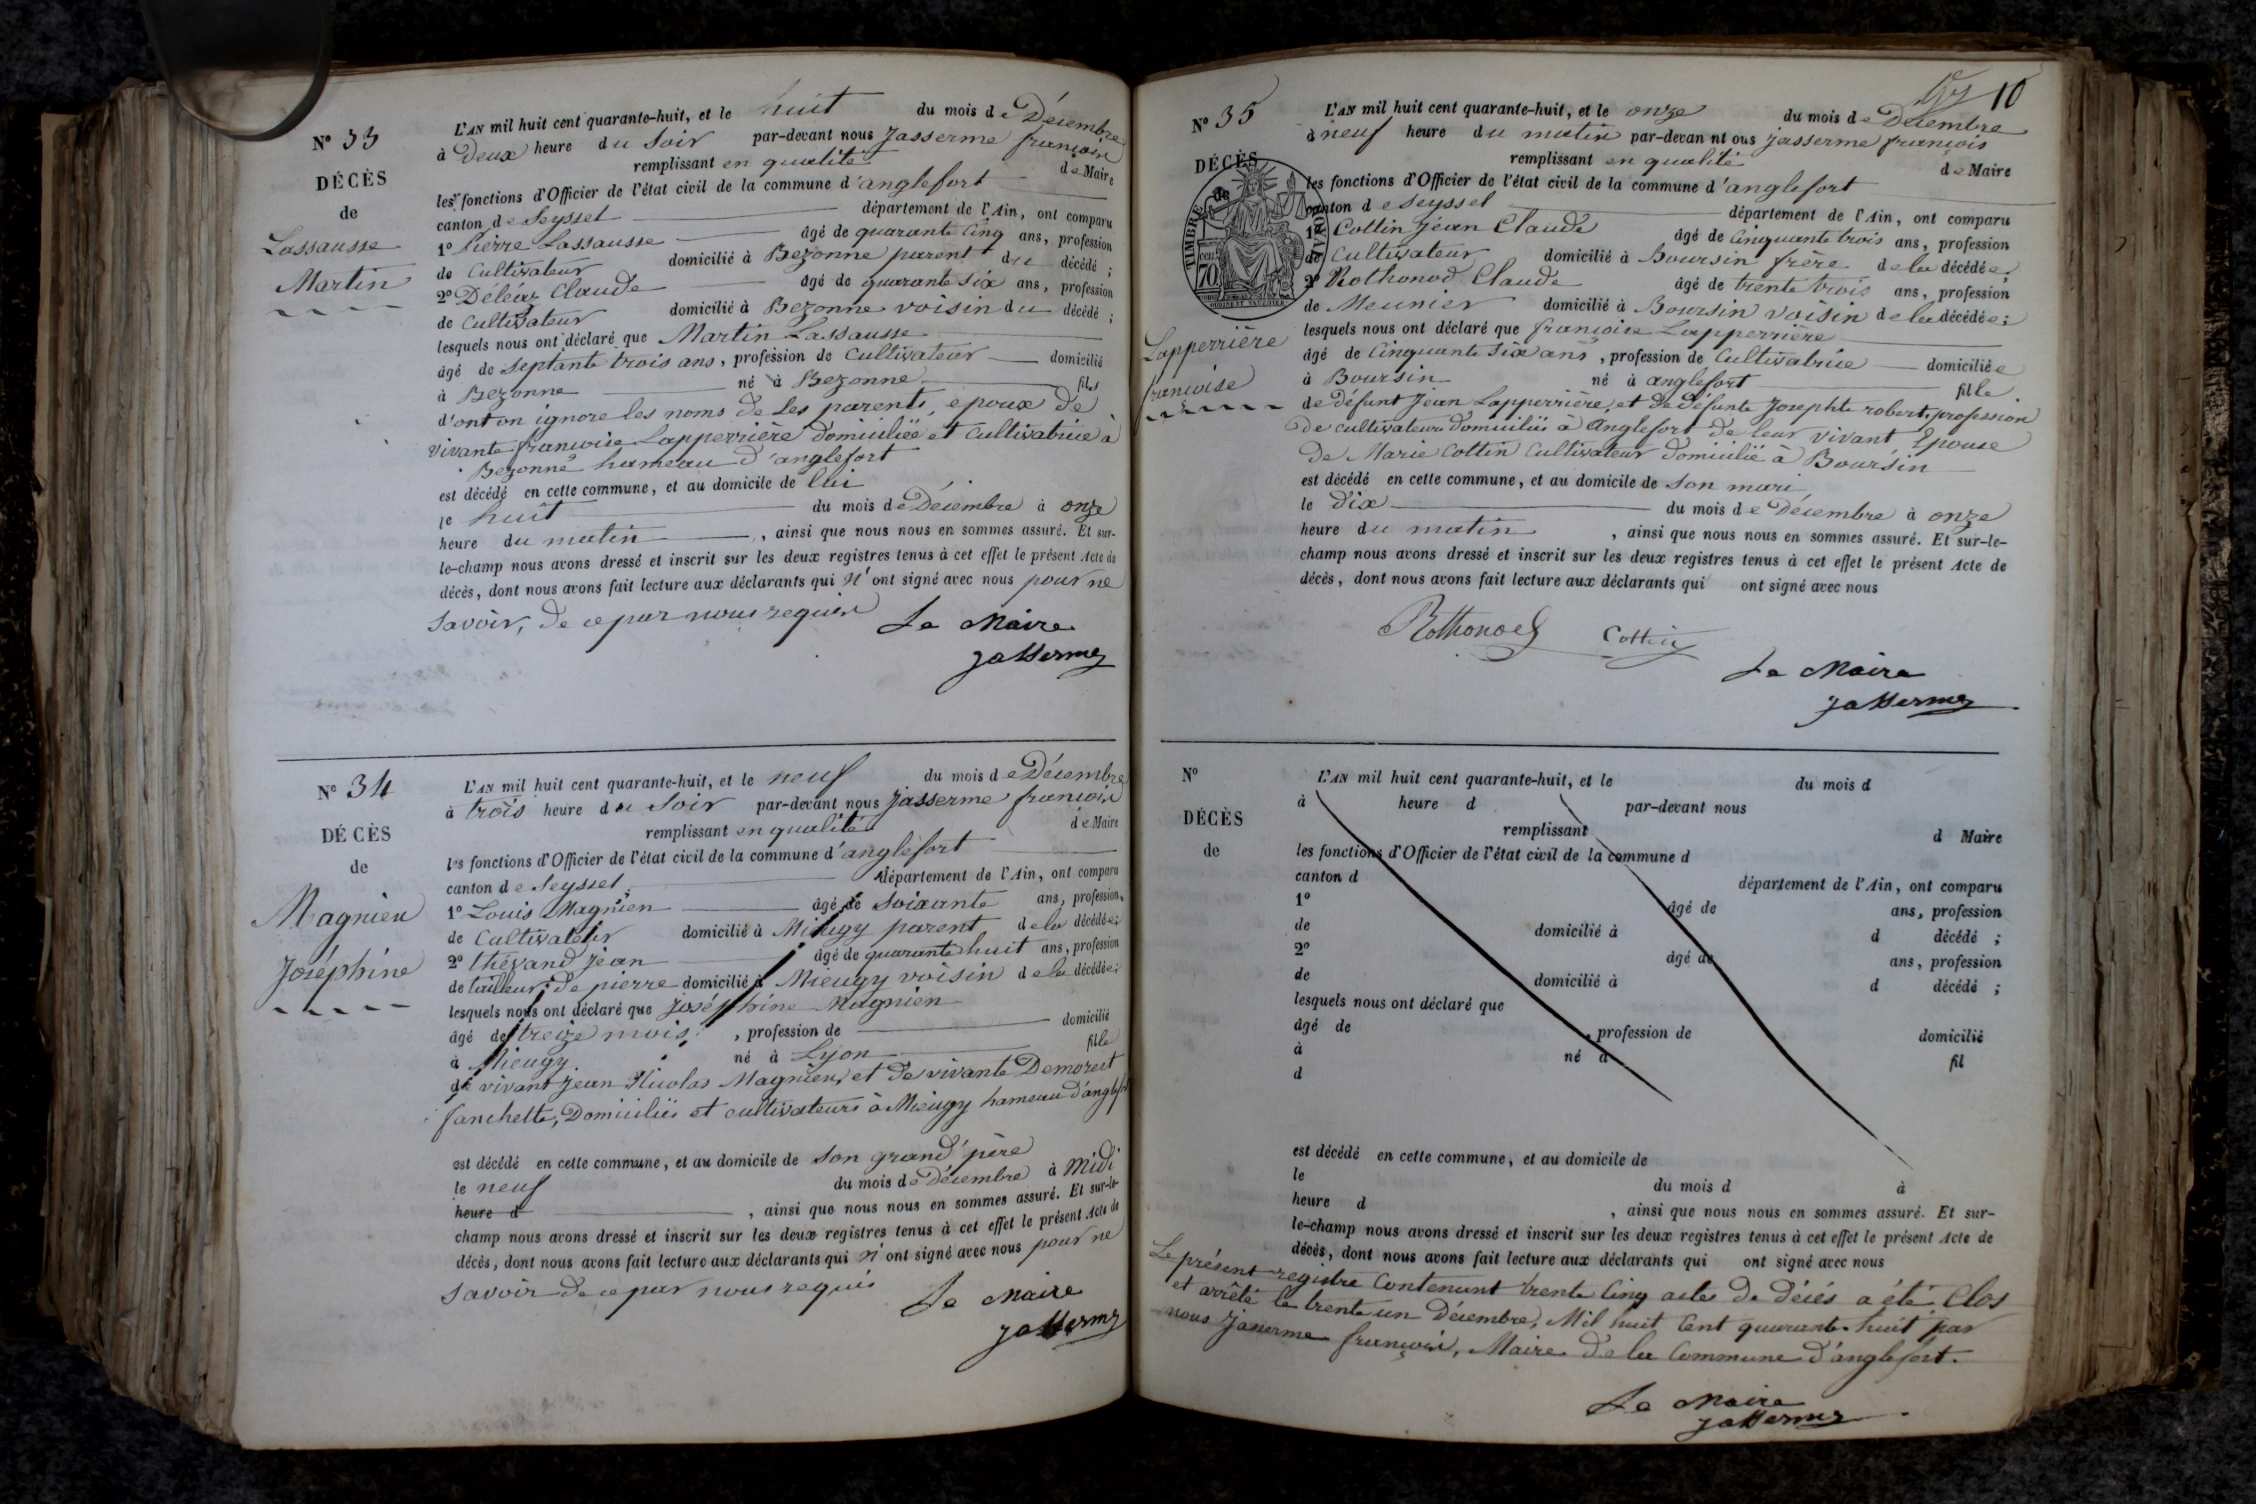 N° 33
DÉCÈS
de
Lassausse
Martin
L'AN mil huit cent quarante-huit, et le huit du mois de Décembre
à Deux heure du Soir par-devant nous Jasserme françois
remplissant en qualité de Maire
les fonctions d'Officier de l'état civil de la commune d'anglefort
canton de Seyssel département de l'Ain, ont comparu
1° Pierre Lassausse âgé de quarante Cinq ans, profession
de Cultivateur domicilié à Bezonne parent du décédé ;
2° Déléaz Claude âgé de quarante Six ans, profession
de Cultivateur domicilié à Bezonne voisin du décédé ;
lesquels nous ont déclaré que Martin Lassausse
âgé de Septante trois ans, profession de Cultivateur domicilié
à Bezonne né à Bezonne fils
d'ont on ignore les noms de Ses parents, epoux De
vivante francoise Lapperrière domiciliée et Cultivatrice à
Bezonne hameau d'anglefort
est décédé en cette commune, et au domicile de lui
le huit du mois de Décembre à onze
heure du matin, ainsi que nous nous en sommes assuré. Et sur-
le-champ nous avons dressé et inscrit sur les deux registres tenus à cet effet le présent Acte de
décès, dont nous avons fait lecture aux déclarants qui n'ont signé avec nous pour ne
Savoir, de ce par nous requis
Le Maire
Jasserme
N° 34
DÉCÈS
de
Magnien
Joséphine
L'AN mil huit cent quarante-huit, et le neuf du mois de Décembre
à trois heure du Soir par-devant nous Jasserme françois
remplissant en qualité de Maire
les fonctions d'Officier de l'état civil de la commune d'anglefort
canton de Seyssel département de l'Ain, ont comparu
1° Louis Magnien âgé de Soixante ans, profession
de Cultivateur domicilié à Mieugy parent de la décédée ;
2° thévand Jean âgé de quarante huit ans, profession
de tailleur de pierre domicilié à Mieugy voisin de la décédée ;
lesquels nous ont déclaré que Joséphine Magnien
âgé de treize mois, profession de domicilié
à Mieugy né à Lyon fille
de vivant Jean Nicolas Magnien, et de vivante Demorest
fanchette, Domiciliés et cultivateurs à Mieugy hameau d'anglefort
est décédé en cette commune, et au domicile de Son grand'père
le neuf du mois de Décembre à Midi
heure d, ainsi que nous nous en sommes assuré. Et sur-le-
champ nous avons dressé et inscrit sur les deux registres tenus à cet effet le présent Acte de
décès, dont nous avons fait lecture aux déclarants qui n'ont signé avec nous pour ne
Savoir de ce par nous requis
Le Maire
Jasserme
10
N° 35
DÉCÈS
de
TIMBRE ROYAL
70
Lapperrière
françoise
L'AN mil huit cent quarante-huit, et le onze du mois de Décembre
à neuf heure du matin par-devan nt ous Jasserme françois
remplissant en qualité de Maire
les fonctions d'Officier de l'état civil de la commune d'anglefort
canton de Seyssel département de l'Ain, ont comparu
1° Cottin Jean Claude âgé de Cinquante trois ans, profession
de Cultivateur domicilié à Boursin frère de la décédée ;
2° Rothonod Claude âgé de trente trois ans, profession
de Meunier domicilié à Boursin voisin de la décédée ;
lesquels nous ont déclaré que françoise Lapperrière
âgé de Cinquante Six ans, profession de Cultivatrice domiciliée
à Boursin né à anglefort fille
de Défunt Jean Lapperrière, et de Défunte Josephte robert, profession
De cultivateurs domiciliés à anglefort de leur vivant Epouse
De Marie Cottin Cultivateur domicilié à Boursin
est décédé en cette commune, et au domicile de Son mari
le dix du mois de Décembre à onze
heure du matin, ainsi que nous nous en sommes assuré. Et sur-le-
champ nous avons dressé et inscrit sur les deux registres tenus à cet effet le présent Acte de
décès, dont nous avons fait lecture aux déclarants qui ont signé avec nous
Rothonod Cottin
Le Maire
Jasserme
N°
DÉCÈS
de
L'AN mil huit cent quarante-huit, et le du mois d
à heure d par-devant nous
remplissant d Maire
les fonctions d'Officier de l'état civil de la commune d
canton d département de l'Ain, ont comparu
1° âgé de ans, profession
de domicilié à d décédé ;
2° âgé de ans, profession
de domicilié à d décédé ;
lesquels nous ont déclaré que
âgé de, profession de domicilié
à né à fil
d
est décédé en cette commune, et au domicile de
le du mois d à
heure d, ainsi que nous nous en sommes assuré. Et sur-
le-champ nous avons dressé et inscrit sur les deux registres tenus à cet effet le présent Acte de
décès, dont nous avons fait lecture aux déclarants qui ont signé avec nous
Le présent registre Contenant trente Cinq actes de décés a été Clos
et arrêté le trente un Décembre, Mil huit Cent quarante-huit par
nous Jasserme françois, Maire de la Commune d'anglefort.
Le Maire
Jasserme